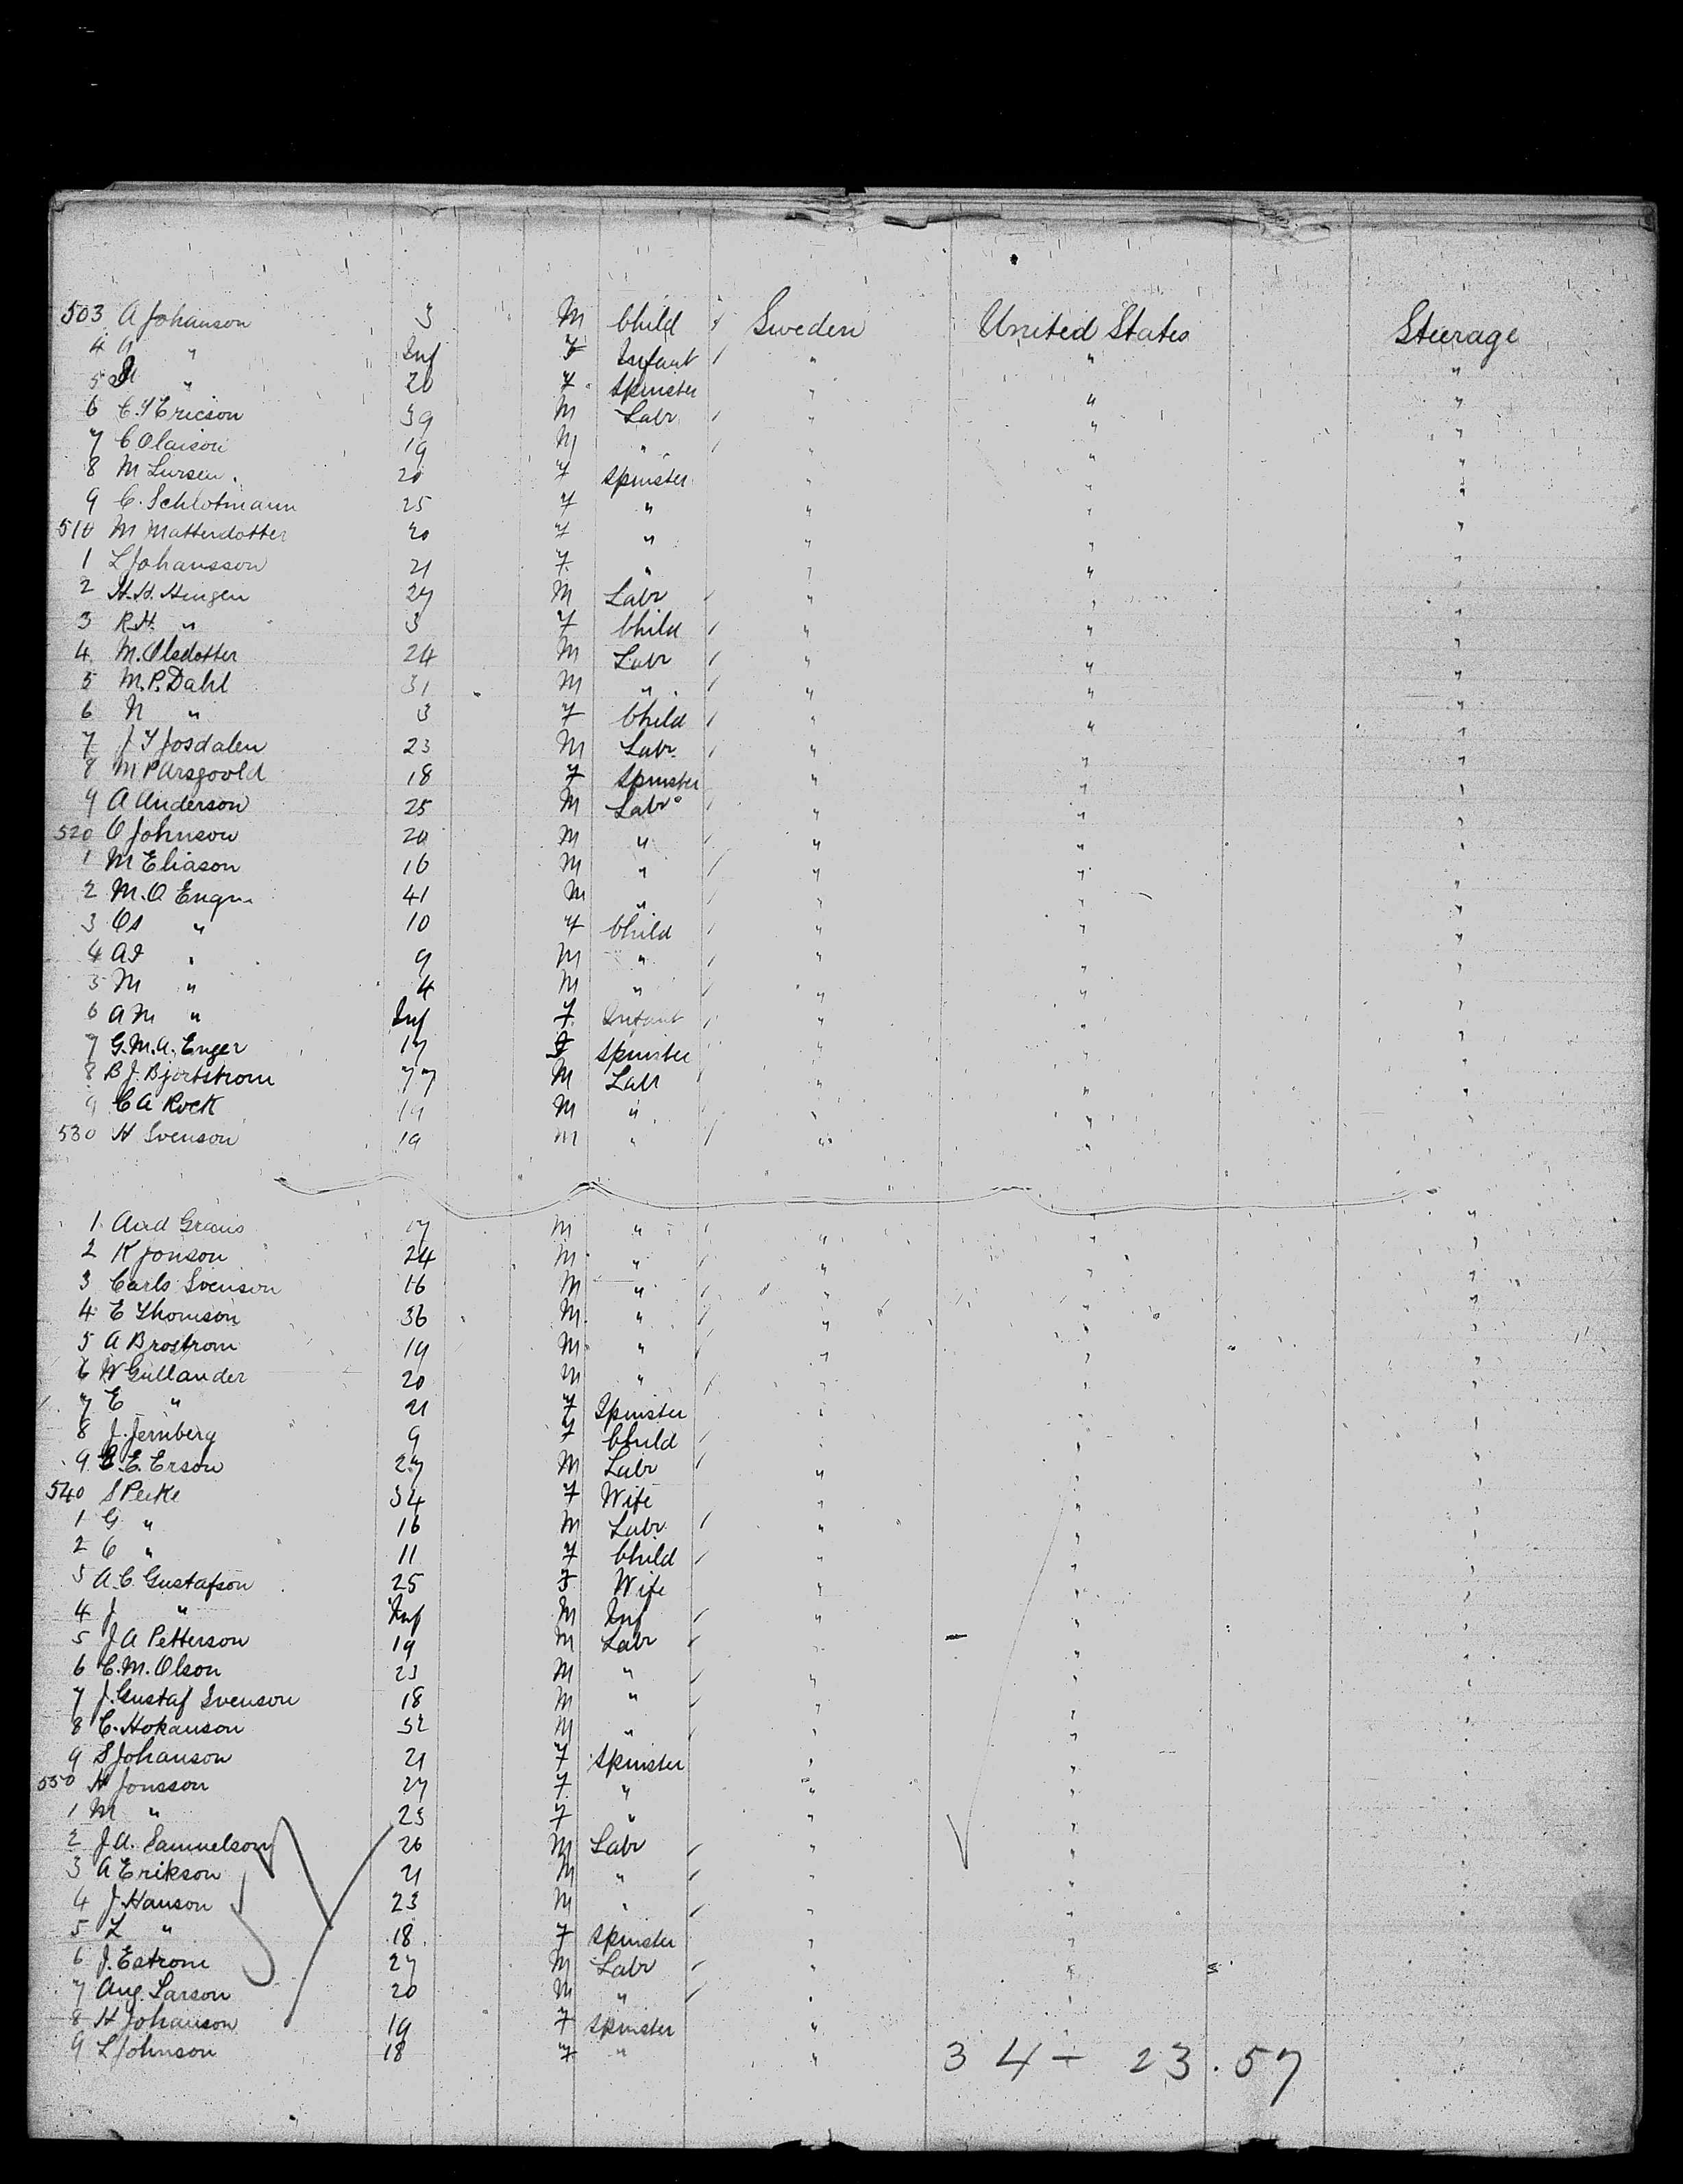 503 A Johanson 3 M Child Sweden United States Steerage
4 A " Inf F Infant " " "
5 " 20 F Spinster " " "
6 C. Y Ericson 39 M Labr " " "
7 C Olaison 19 M " " " "
8 M Lursen 20 F Spinster " " "
9 C. Schlotmann 25 F " " " "
510 M Matterdotter 20 F " " " "
1 L Johansson 21 F " " " "
2 H. H. Hingen 27 M Labr " " "
3 R. H. " 3 F Child " " "
4 M. Olsdotter 24 M Labr " " "
5 M. P. Dahl 31 M " " " "
6 N " 3 F Child " " "
7 J Y Josdalen 23 M Labr " " "
8 M P Arsgoold 18 F Spinster " " "
9 A Anderson 25 M Labr " " "
520 O Johnson 20 M " " " "
1 M Eliason 16 M " " " "
2 M. O Engn 41 M " " " "
3 Os " 10 F Child " " "
4 A I " 9 M " " " "
5 M " 4 M " " " "
6 A M " Inf F Infant " " "
7 G. M. A. Enger 17 F Spinster " " "
8 B J. Bjortstrom 77 M Labr " " "
9 C A Rock 19 M " " " "
530 H Svenson 19 M " " " "
1 And Graus 17 M " " " "
2 K Jonson 24 M " " " "
3 Carls Svenson 16 M " " " "
4 E Thomson 36 M " " " "
5 A Brostrom 19 M " " " "
6 W Gullander 20 M " " " "
7 E " 21 F Spinster " " "
8 J. Jernberg 9 F Child " " "
9 E. E. Erson 27 M Labr " " "
540 S Peeke 34 F Wife " " "
1 G " 16 M Labr " " "
2 C " 11 F Child " " "
3 A. C. Gustafson 25 F Wife " " "
4 J " Inf M Inf " " "
5 J A Petterson 19 M Labr " " "
6 C. M. Olson 23 M " " " "
7 J. Gustaf Svenson 18 M " " " "
8 C. Hokanson 32 M " " " "
9 S Johanson 21 F Spinster " " "
550 H Jonsson 27 F " " " "
1 M " 23 F " " " "
2 J. A. Samuelson 26 M Labr " " "
3 A Erikson 21 M " " " "
4 J. Hanson 23 M " " " "
5 L " 18 F Spinster " " "
6 J. Eatrom 27 M Labr " " "
7 Aug. Larson 20 M " " " "
8 H Johanson 19 F Spinster " " "
9 L Johnson 18 F " " " "
34 - 23.57